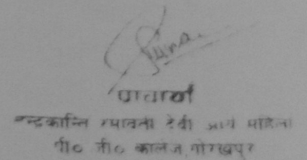 प्राचार्य
चन्द्रकान्ति रमावती देवी आर्य महिला
पी० जी० कालेज, गोरखपुर